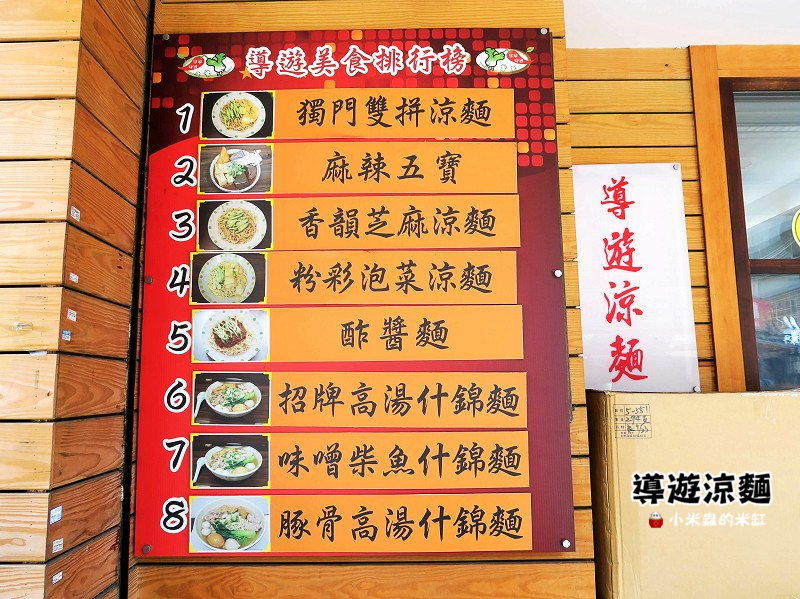 導遊美食排行榜
1 獨門雙拼涼麵
2 麻辣五寶
3 香韻芝麻涼麵
4 粉彩泡菜涼麵
5 酢醬麵
6 招牌高湯什錦麵
7 味噌柴魚什錦麵
8 豚骨高湯什錦麵
導遊涼麵
5-551
導遊涼麵
小米蟲的米缸